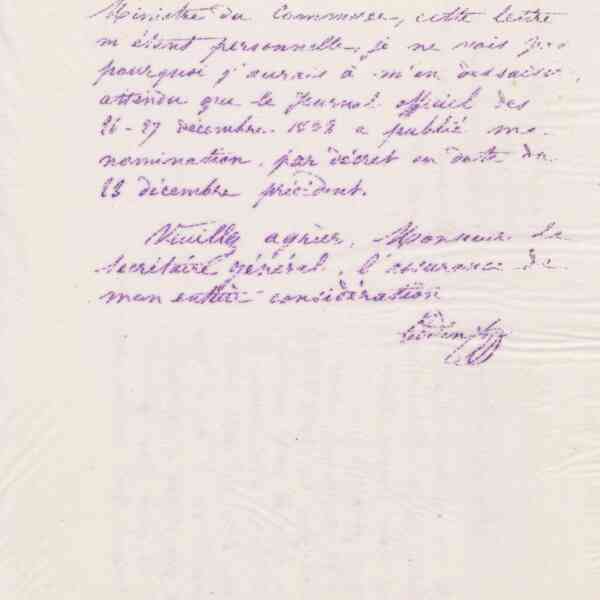 Ministre du Commerce, cette lettre
m'étant personnelle, je ne vois pas
pourquoi j'aurais à m'en dessaisir,
attendu que le Journal officiel des
26-27 décembre a publié ma
nomination, par décret en date du
23 décembre précédent.
Veuillez agréer, Monsieur le
Secrétaire général, l'assurance de
mon entière considération